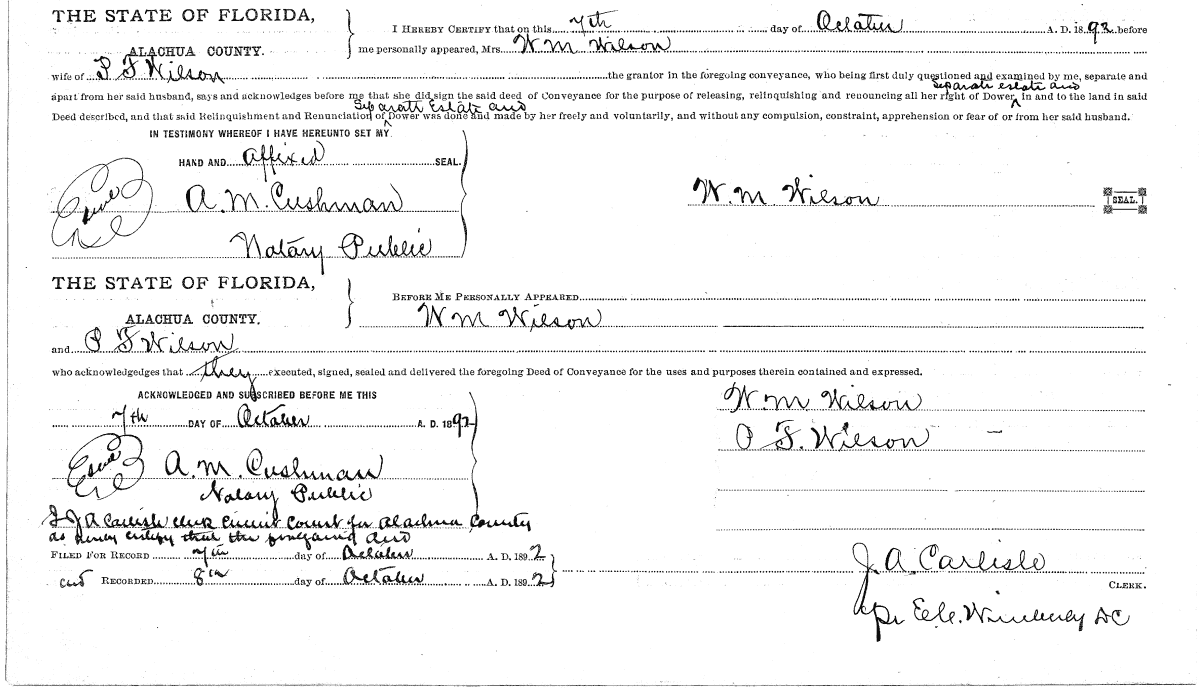 THE STATE OF FLORIDA,
ALACHUA COUNTY.
I HEREBY CERTIFY that on this 7th day of October A. D. 1892 before
me personally appeared, Mrs. W M Wilson
wife of P F Wilson the grantor in the foregoing conveyance, who being first duly questioned and examined by me, separate and
separate estate and
apart from her said husband, says and acknowledges before me that she did sign the said deed of Conveyance for the purpose of releasing, relinquishing and renouncing all her right of Dower, in and to the land in said
Separate Estate and
Deed described, and that said Relinquishment and Renunciation of Dower was done and made by her freely and voluntarily, and without any compulsion, constraint, apprehension or fear of or from her said husband.
IN TESTIMONY WHEREOF I HAVE HEREUNTO SET MY
HAND AND affixed SEAL.
A. M. Cushman
Notary Public
W. M Wilson
SEAL.
THE STATE OF FLORIDA,
ALACHUA COUNTY.
BEFORE ME PERSONALLY APPEARED
W M Wilson
and P F Wilson
who acknowledges that they executed, signed, sealed and delivered the foregoing Deed of Conveyance for the uses and purposes therein contained and expressed.
ACKNOWLEDGED AND SUBSCRIBED BEFORE ME THIS
7th DAY OF October A. D. 1892
A. M. Cushman
Notary Public
W. M Wilson
P F. Wilson
I J A Carlisle Clerk Circuit Court for Alachua County
do hereby certify that the foregoing deed
FILED FOR RECORD 7th day of October A. D. 1892
and RECORDED 8th day of October A. D. 1892
J. A. Carlisle
CLERK.
DC